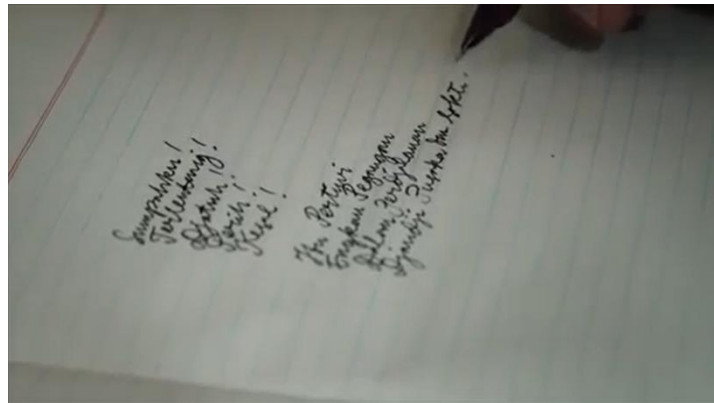 Terlentang!
Djatuh!
Perih!
Kesal!
Ibu Pertiwi
Engkau Pegangan
Dalam Perdjalanan
Djandji Pusaka dan Sakti.